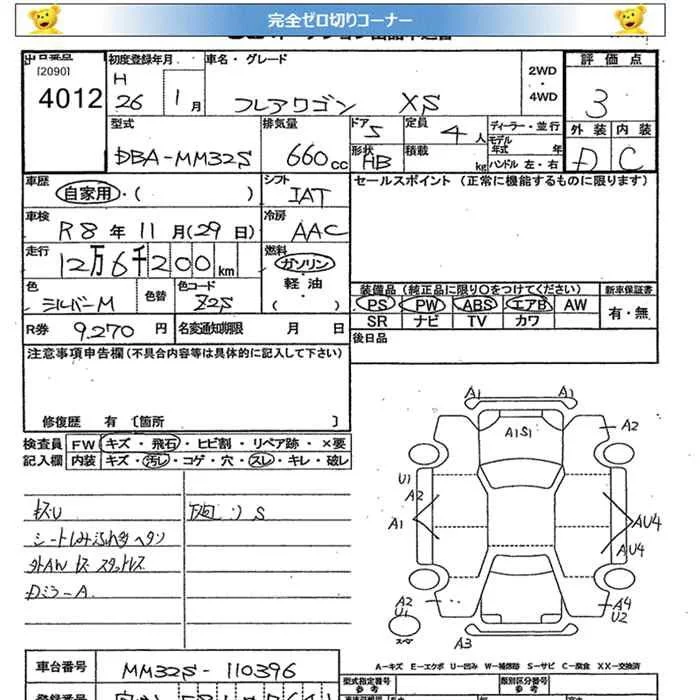 完全ゼロ切りコーナー
出品番号 初度登録年月 車名・グレード 2WD ・ 4WD 評価点
[2090]
4012 H 26 1月 フレアワゴン XS 3
型式 排気量 ドア 5 定員 4人 ディーラー・並行 外装 内装
DBA-MM32S 660cc 形状 HB 積載 kg モデル年式 年 ハンドル 左・右 D C
車歴 自家用・( ) シフト IAT セールスポイント (正常に機能するものに限ります)
車検 R8年 11月(29日) 冷房 AAC
走行 12万6千200km 燃料 ガソリン・軽油 ( )
色 シルバーM 色替 色コード Z2S 装備品 (純正品に限り○をつけてください) 新車保証書
PS PW ABS エアB AW 有・無
R券 9,270円 名変通知期限 月 日 SR ナビ TV カワ
注意事項申告欄(不具合内容等は具体的に記入して下さい) 後日品
修復歴 有 〔箇所 〕
検査員 FW キズ・飛石・ヒビ割・リペア跡・×要
記入欄 内装 キズ・汚し・コゲ・穴・スレ・キレ・破レ
キズU 下廻り S
シートしみ
外AW キズ スタットレス
Dミラ-A
A1 A1
A1S1 A2
U1
A2
A1 AU4
AU4
A2 A4
U1 U2
A3
A-キズ E-エクボ U-凹み W-補修跡 S-サビ C-腐食 XX-交換済
車台番号 MM32S-110396 型式指定番号 参考 類別区分番号 参考
登録番号